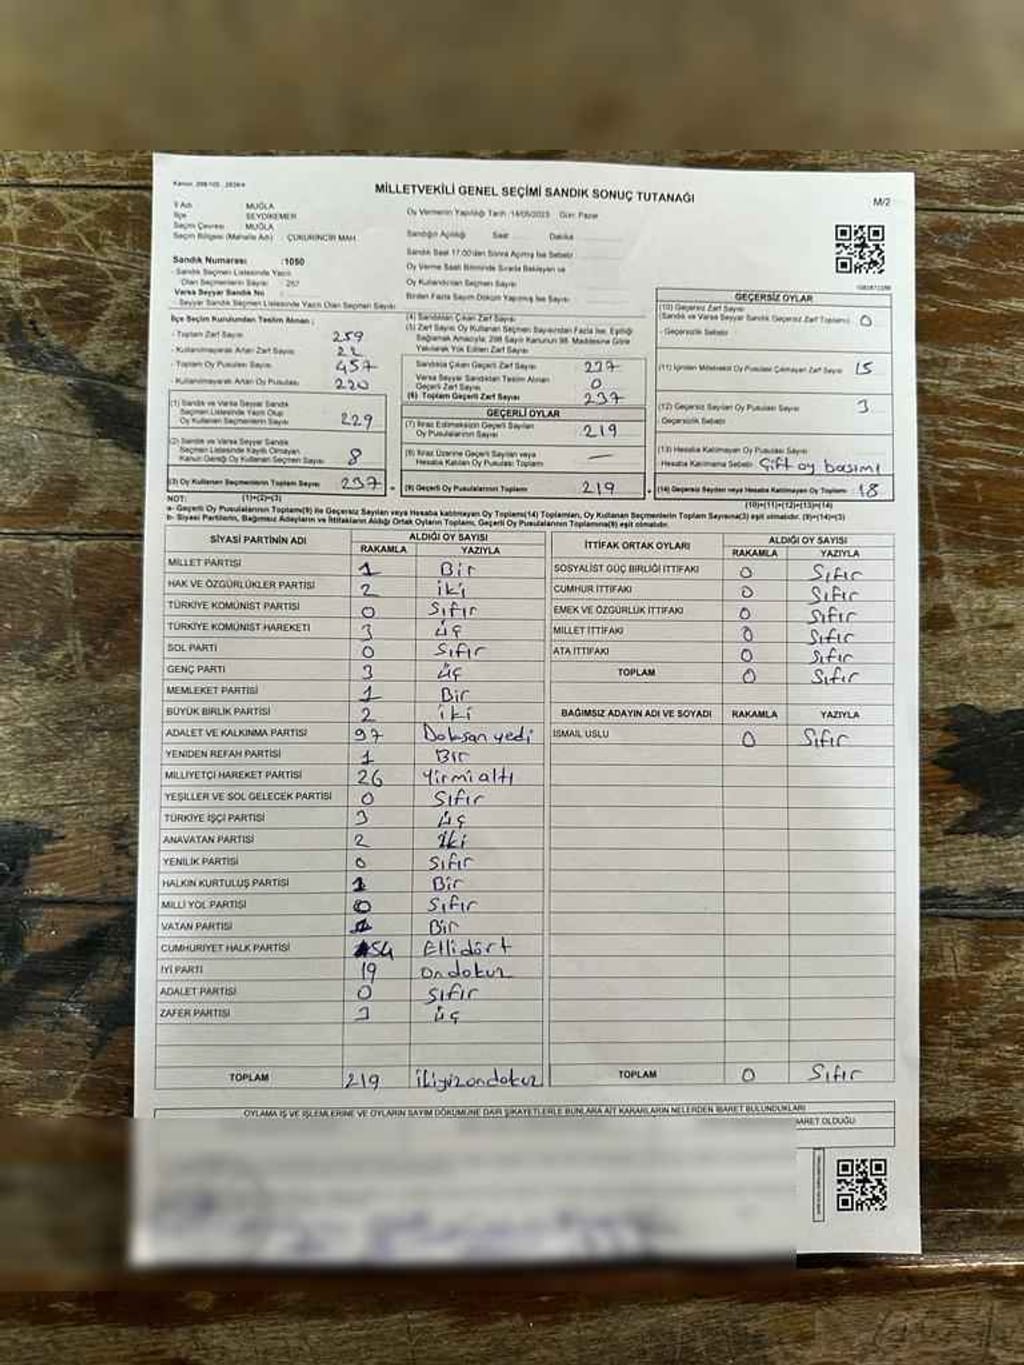 MİLLETVEKİLİ GENEL SEÇİMİ SANDIK SONUÇ TUTANAĞI
M/2
İl Adı : MUĞLA
İlçe : SEYDİKEMER
Seçim Çevresi : MUĞLA
Seçim Bölgesi (Mahalle Adı) : ÇUKURİNCİR MAH.
Oy Vermenin Yapıldığı Tarih :14/05/2023 Gün: Pazar
Sandığın Açıldığı Saat Dakika
Sandık Saat 17:00'dan Sonra Açılmış İse Sebebi
Oy Verme Saati Bitiminde Sırada Bekleyen ve
Oy Kullandırılan Seçmen Sayısı
Birden Fazla Sayım Döküm Yapılmış İse Sayısı
Sandık Numarası :1050
- Sandık Seçmen Listesinde Yazılı
Olan Seçmenlerin Sayısı
Varsa Seyyar Sandık No
- Seyyar Sandık Seçmen Listesinde Yazılı Olan Seçmen Sayısı
İlçe Seçim Kurulundan Teslim Alınan :
- Toplam Zarf Sayısı 259
- Kullanılmayarak Artan Zarf Sayısı 22
- Toplam Oy Pusulası 457
- Kullanılmayarak Artan Oy Pusulası 220
(1) Sandık ve Varsa Seyyar Sandık
Seçmen Listesinde Yazılı Olup
Oy Kullanan Seçmenlerin Sayısı 229
(2) Sandık ve Varsa Seyyar Sandık
Seçmen Listesinde Kayıtlı Olmayan
Kanun Gereği Oy Kullanan Seçmen Sayısı 8
(3) Oy Kullanan Seçmenlerin Toplam Sayısı 237
(1)+(2)=(3)
(4) Sandıktan Çıkan Zarf Sayısı
(5) Zarf Sayısı Oy Kullanan Seçmen Sayısından Fazla İse, Eşitliği
Sağlamak Amacıyla; 298 Sayılı Kanunun 98. Maddesine Göre
Yakılarak Yok Edilen Zarf Sayısı
Sandıkta Çıkan Geçerli Zarf Sayısı 237
Varsa Seyyar Sandıktan Teslim Alınan
Geçerli Zarf Sayısı 0
(6) Toplam Geçerli Zarf Sayısı 237
GEÇERLİ OYLAR
(7) İtiraz Edilmeksizin Geçerli Sayılan
Oy Pusulalarının Sayısı 219
(8) İtiraz Üzerine Geçerli Sayılan veya
Hesaba Katılan Oy Pusulası Toplamı —
(9) Geçerli Oy Pusulalarının Toplamı 219
GEÇERSİZ OYLAR
(10) Geçersiz Zarf Sayısı
(Sandık ve Varsa Seyyar Sandık Geçersiz Zarf Toplamı) 0
- Geçersizlik Sebebi
(11) İçinden Milletvekili Oy Pusulası Çıkmayan Zarf Sayısı 15
(12) Geçersiz Sayılan Oy Pusulası Sayısı 3
- Geçersizlik Sebebi
(13) Hesaba Katılmayan Oy Pusulası Sayısı
Hesaba Katılmama Sebebi Çift oy basımı
(14) Geçersiz Sayılan veya Hesaba Katılmayan Oy Toplamı 18
(10)+(11)+(12)+(13)=(14)
NOT:
a- Geçerli Oy Pusulalarının Toplamı(9) ile Geçersiz Sayılan veya Hesaba katılmayan Oy Toplamı(14) Toplamları, Oy Kullanan Seçmenlerin Toplam Sayısına(3) eşit olmalıdır. (9)+(14)=(3)
b- Siyasi Partilerin, Bağımsız Adayların ve İttifakların Aldığı Ortak Oyların Toplamı, Geçerli Oy Pusulalarının Toplamına(9) eşit olmalıdır.
SİYASİ PARTİNİN ADI ALDIĞI OY SAYISI
RAKAMLA YAZIYLA
MİLLET PARTİSİ 1 Bir
HAK VE ÖZGÜRLÜKLER PARTİSİ 2 iki
TÜRKİYE KOMÜNİST PARTİSİ 0 Sıfır
TÜRKİYE KOMÜNİST HAREKETİ 3 üç
SOL PARTİ 0 Sıfır
GENÇ PARTİ 3 üç
MEMLEKET PARTİSİ 1 Bir
BÜYÜK BİRLİK PARTİSİ 2 iki
ADALET VE KALKINMA PARTİSİ 97 Doksan yedi
YENİDEN REFAH PARTİSİ 1 Bir
MİLLİYETÇİ HAREKET PARTİSİ 26 Yirmialtı
YEŞİLLER VE SOL GELECEK PARTİSİ 0 Sıfır
TÜRKİYE İŞÇİ PARTİSİ 3 üç
ANAVATAN PARTİSİ 2 iki
YENİLİK PARTİSİ 0 Sıfır
HALKIN KURTULUŞ PARTİSİ 1 Bir
MİLLİ YOL PARTİSİ 0 Sıfır
VATAN PARTİSİ 1 Bir
CUMHURİYET HALK PARTİSİ 54 Ellidört
İYİ PARTİ 19 Ondokuz
ADALET PARTİSİ 0 Sıfır
ZAFER PARTİSİ 3 üç
TOPLAM 219 ikiyüzondokuz
İTTİFAK ORTAK OYLARI ALDIĞI OY SAYISI
RAKAMLA YAZIYLA
SOSYALİST GÜÇ BİRLİĞİ İTTİFAKI 0 Sıfır
CUMHUR İTTİFAKI 0 Sıfır
EMEK VE ÖZGÜRLÜK İTTİFAKI 0 Sıfır
MİLLET İTTİFAKI 0 Sıfır
ATA İTTİFAKI 0 Sıfır
TOPLAM 0 Sıfır
BAĞIMSIZ ADAYIN ADI VE SOYADI RAKAMLA YAZIYLA
İSMAİL USLU 0 Sıfır
TOPLAM 0 Sıfır
OYLAMA İŞ VE İŞLEMLERİNE VE OYLARIN SAYIM DÖKÜMÜNE DAİR ŞİKAYETLERLE BUNLARA AİT KARARLARIN NELERDEN İBARET BULUNDUKLARI